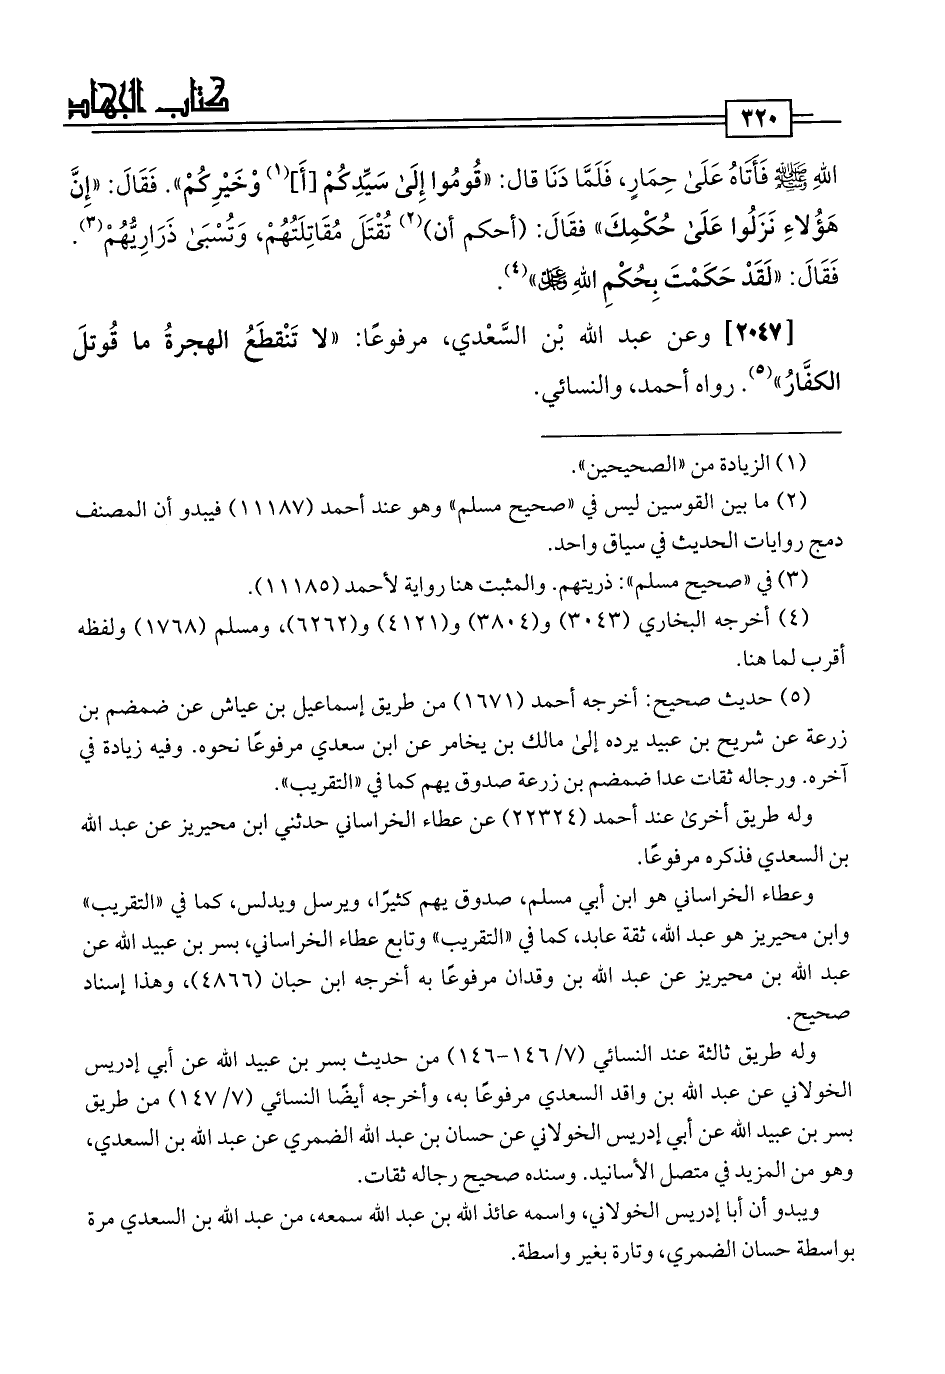 كتاب الجهاد
٣٢٠
اللهِ ﷺ فَأَتَاهُ عَلَىٰ حِمَارٍ، فَلَمَّا دَنَا قال: «قُومُوا إِلَىٰ سَيِّدِكُمْ [أَ](١) وْخَيْرِكُمْ». فَقَالَ: «إِنَّ
هَؤُلاءِ نَزَلُوا عَلَىٰ حُكْمِكَ» فقَالَ: (أحكم أن)(٢) تُقْتَلَ مُقَاتِلَتُهُمْ، وَتُسْبَىٰ ذَرَارِيُّهُمْ(٣).
فَقَالَ: «لَقَدْ حَكَمْتَ بِحُكْمِ اللهِ ﷻ»(٤).
[٢٠٤٧] وعن عبد الله بْن السَّعْدي، مرفوعًا: «لا تَنْقطَعُ الهجرةُ ما قُوتلَ
الكفَّارُ»(٥). رواه أحمد، والنسائي.
(١) الزيادة من «الصحيحين».
(٢) ما بين القوسين ليس في «صحيح مسلم» وهو عند أحمد (١١١٨٧) فيبدو أن المصنف
دمج روايات الحديث في سياق واحد.
(٣) في «صحيح مسلم»: ذريتهم. والمثبت هنا رواية لأحمد (١١١٨٥).
(٤) أخرجه البخاري (٣٠٤٣) و(٣٨٠٤) و(٤١٢١) و(٦٢٦٢)، ومسلم (١٧٦٨) ولفظه
أقرب لما هنا.
(٥) حديث صحيح: أخرجه أحمد (١٦٧١) من طريق إسماعيل بن عياش عن ضمضم بن
زرعة عن شريح بن عبيد يرده إلىٰ مالك بن يخامر عن ابن سعدي مرفوعًا نحوه. وفيه زيادة في
آخره. ورجاله ثقات عدا ضمضم بن زرعة صدوق يهم كما في «التقريب».
وله طريق أخرىٰ عند أحمد (٢٢٣٢٤) عن عطاء الخراساني حدثني ابن محيريز عن عبد الله
بن السعدي فذكره مرفوعًا.
وعطاء الخراساني هو ابن أبي مسلم، صدوق يهم كثيرًا، ويرسل ويدلس، كما في «التقريب»
وابن محيريز هو عبد الله، ثقة عابد، كما في «التقريب» وتابع عطاء الخراساني، بسر بن عبيد الله عن
عبد الله بن محيريز عن عبد الله بن وقدان مرفوعًا به أخرجه ابن حبان (٤٨٦٦)، وهذا إسناد
صحيح.
وله طريق ثالثة عند النسائي (٧/ ١٤٦-١٤٦) من حديث بسر بن عبيد الله عن أبي إدريس
الخولاني عن عبد الله بن واقد السعدي مرفوعًا به، وأخرجه أيضًا النسائي (٧/ ١٤٧) من طريق
بسر بن عبيد الله عن أبي إدريس الخولاني عن حسان بن عبد الله الضمري عن عبد الله بن السعدي،
وهو من المزيد في متصل الأسانيد. وسنده صحيح رجاله ثقات.
ويبدو أن أبا إدريس الخولاني، واسمه عائذ الله بن عبد الله سمعه، من عبد الله بن السعدي مرة
بواسطة حسان الضمري، وتارة بغير واسطة.